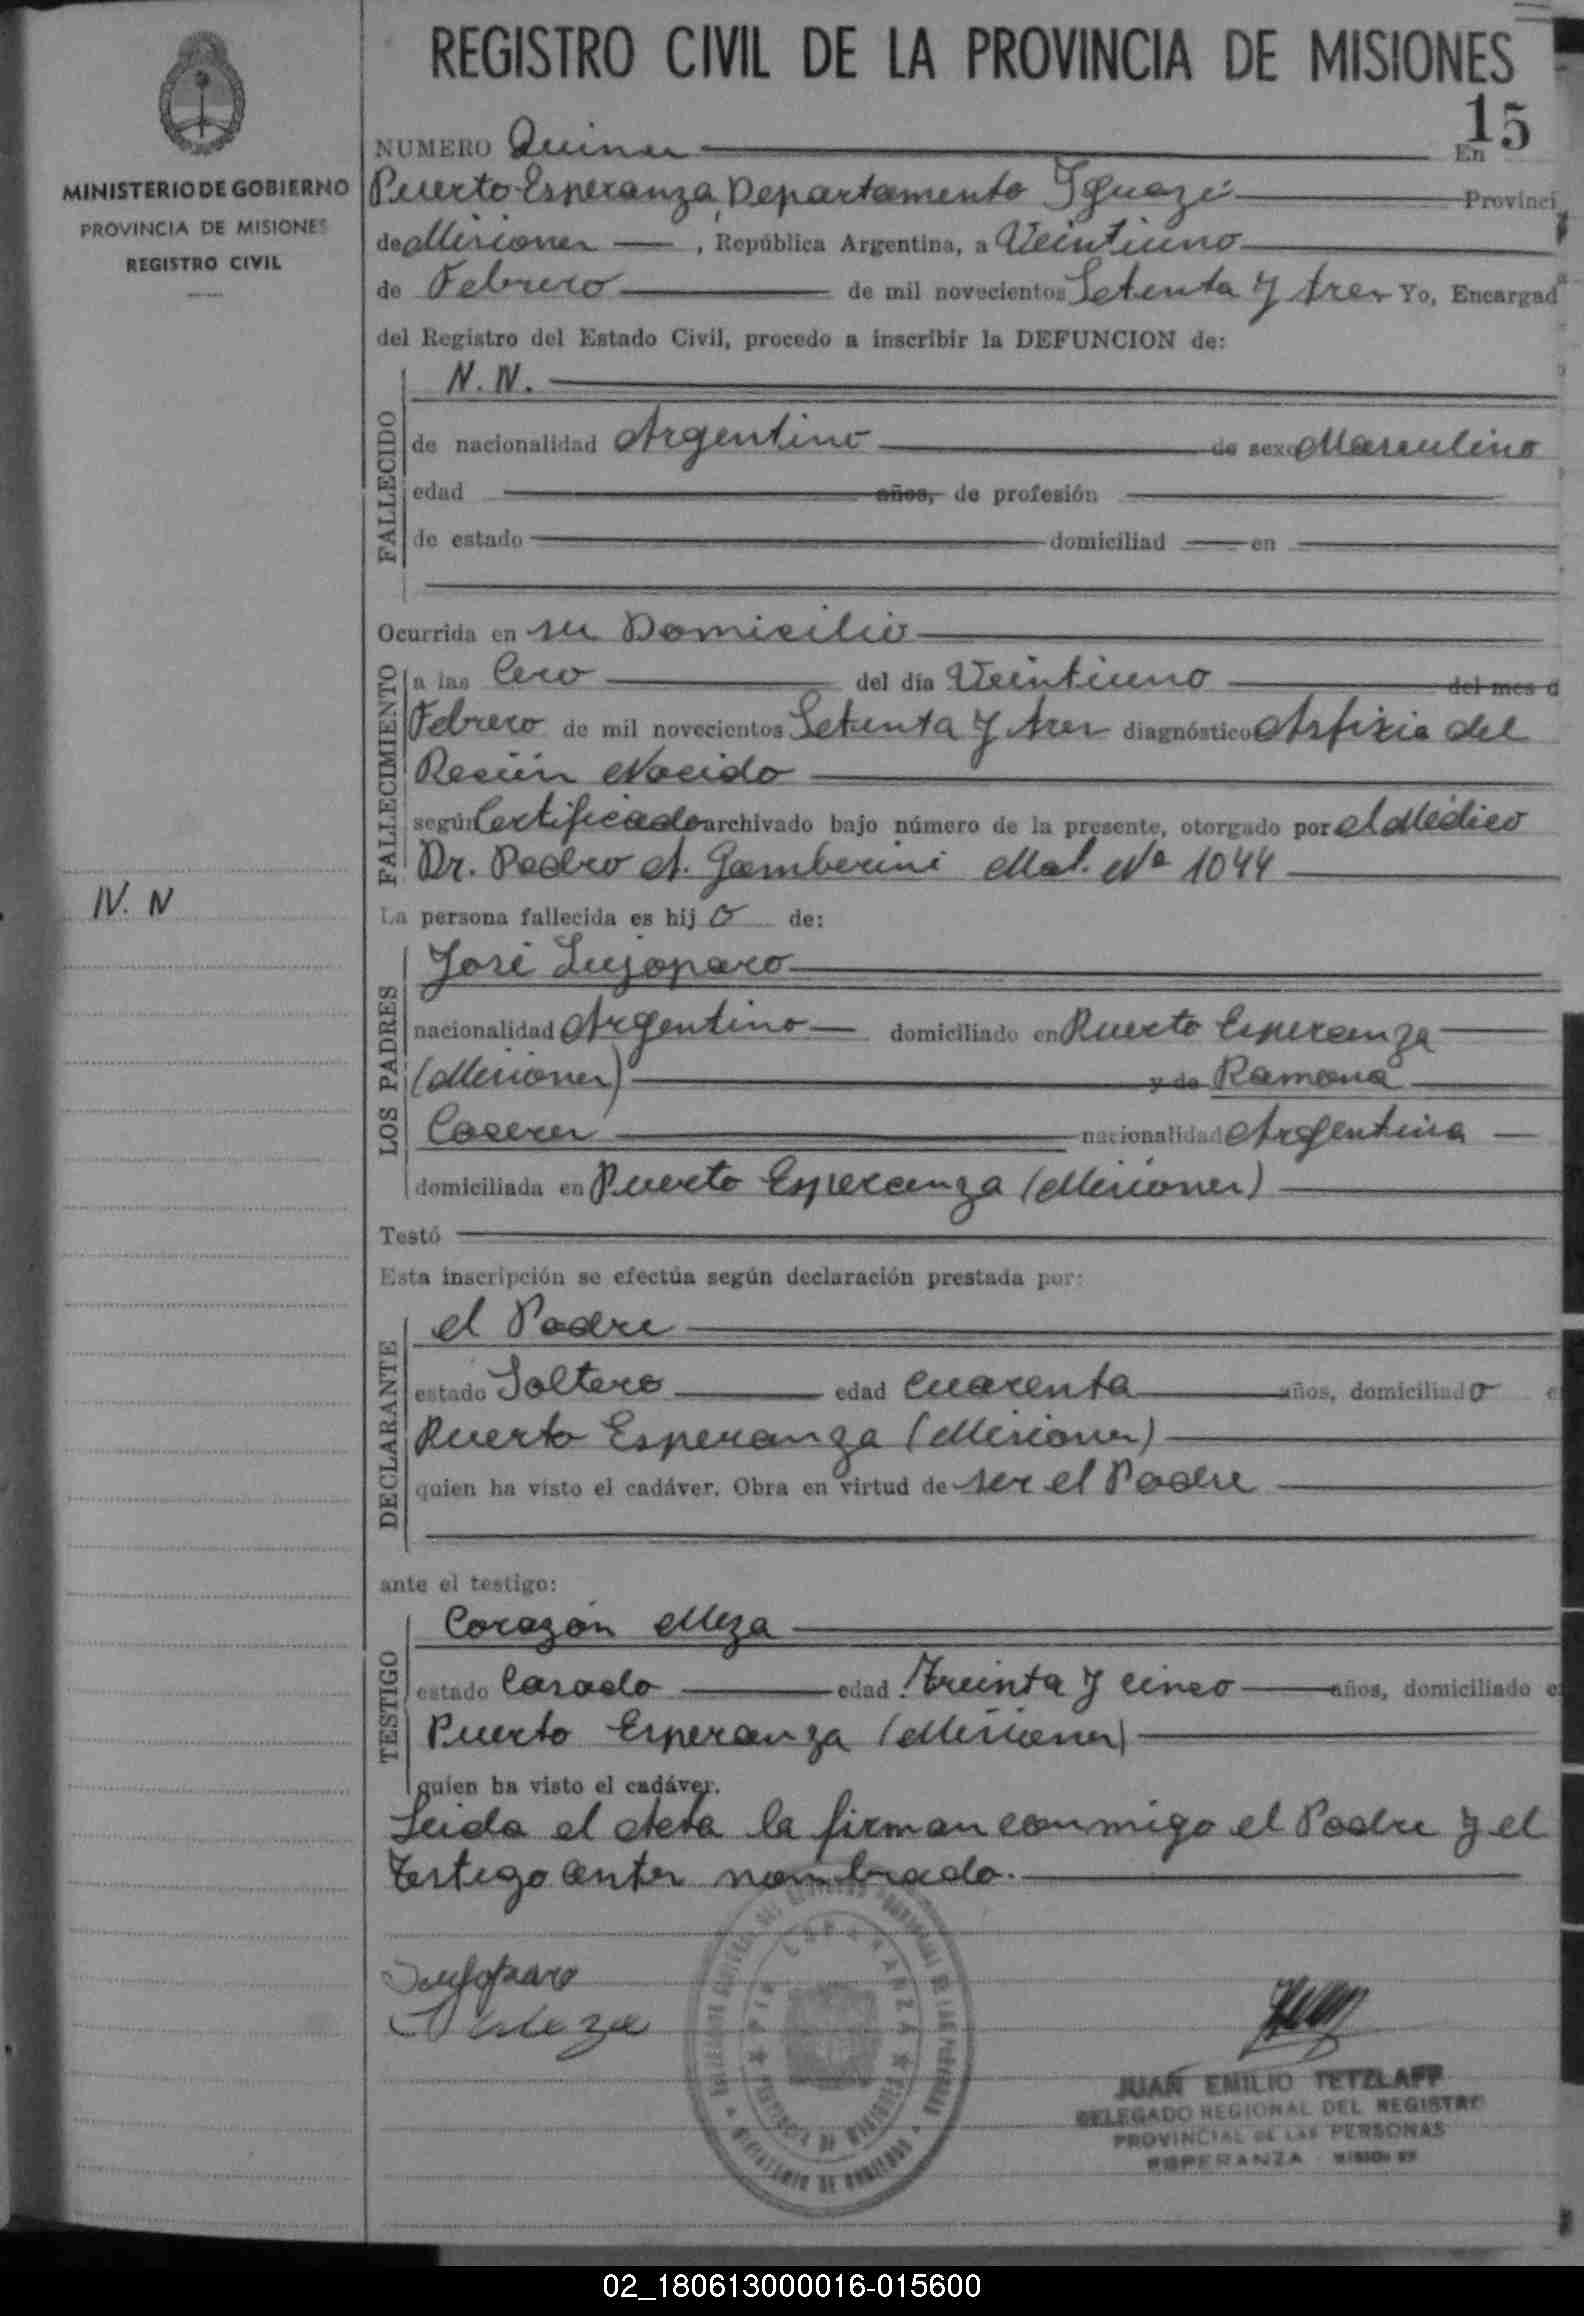 REGISTRO CIVIL DE LA PROVINCIA DE MISIONES
15
MINISTERIO DE GOBIERNO
PROVINCIA DE MISIONES
REGISTRO CIVIL
NUMERO Quince En
Puerto Esperanza, Departamento Iguazú Provinci
de Misiones , República Argentina, a Veintiuno
de Febrero de mil novecientos Setenta y tres Yo, Encargad
del Registro del Estado Civil, procedo a inscribir la DEFUNCION de:
FALLECIDO
N. N.
de nacionalidad Argentino de sexo Masculino
edad años, de profesión
de estado domiciliad en
Ocurrida en su Domicilio
FALLECIMIENTO
a las Cero del día Veintiuno del mes d
Febrero de mil novecientos Setenta y tres diagnóstico Asfixia del
Recién Nacido
según Certificado archivado bajo número de la presente, otorgado por el Médico
Dr. Pedro A. Gamberini Mat. Nº 1044
N. N
La persona fallecida es hij o de:
LOS PADRES
José Lujoparo
nacionalidad Argentino domiciliado en Puerto Esperanza
(Misiones) y de Ramona
Caceres nacionalidad Argentina
domiciliada en Puerto Esperanza (Misiones)
Testó
Esta inscripción se efectúa según declaración prestada por:
DECLARANTE
el Padre
estado Soltero edad cuarenta años, domiciliado e
Puerto Esperanza (Misiones)
quien ha visto el cadáver. Obra en virtud de ser el Padre
ante el testigo:
TESTIGO
Corazón Meza
estado Casado edad Treinta y cinco años, domiciliado e
Puerto Esperanza (Misiones)
quien ha visto el cadáver.
Leida el Acta la firman conmigo el Padre y el
Testigo antes nombrado.
JUAN EMILIO TETZLAFF
DELEGADO REGIONAL DEL REGISTRO
PROVINCIAL DE LAS PERSONAS
ESPERANZA MISIONES
02_180613000016-015600